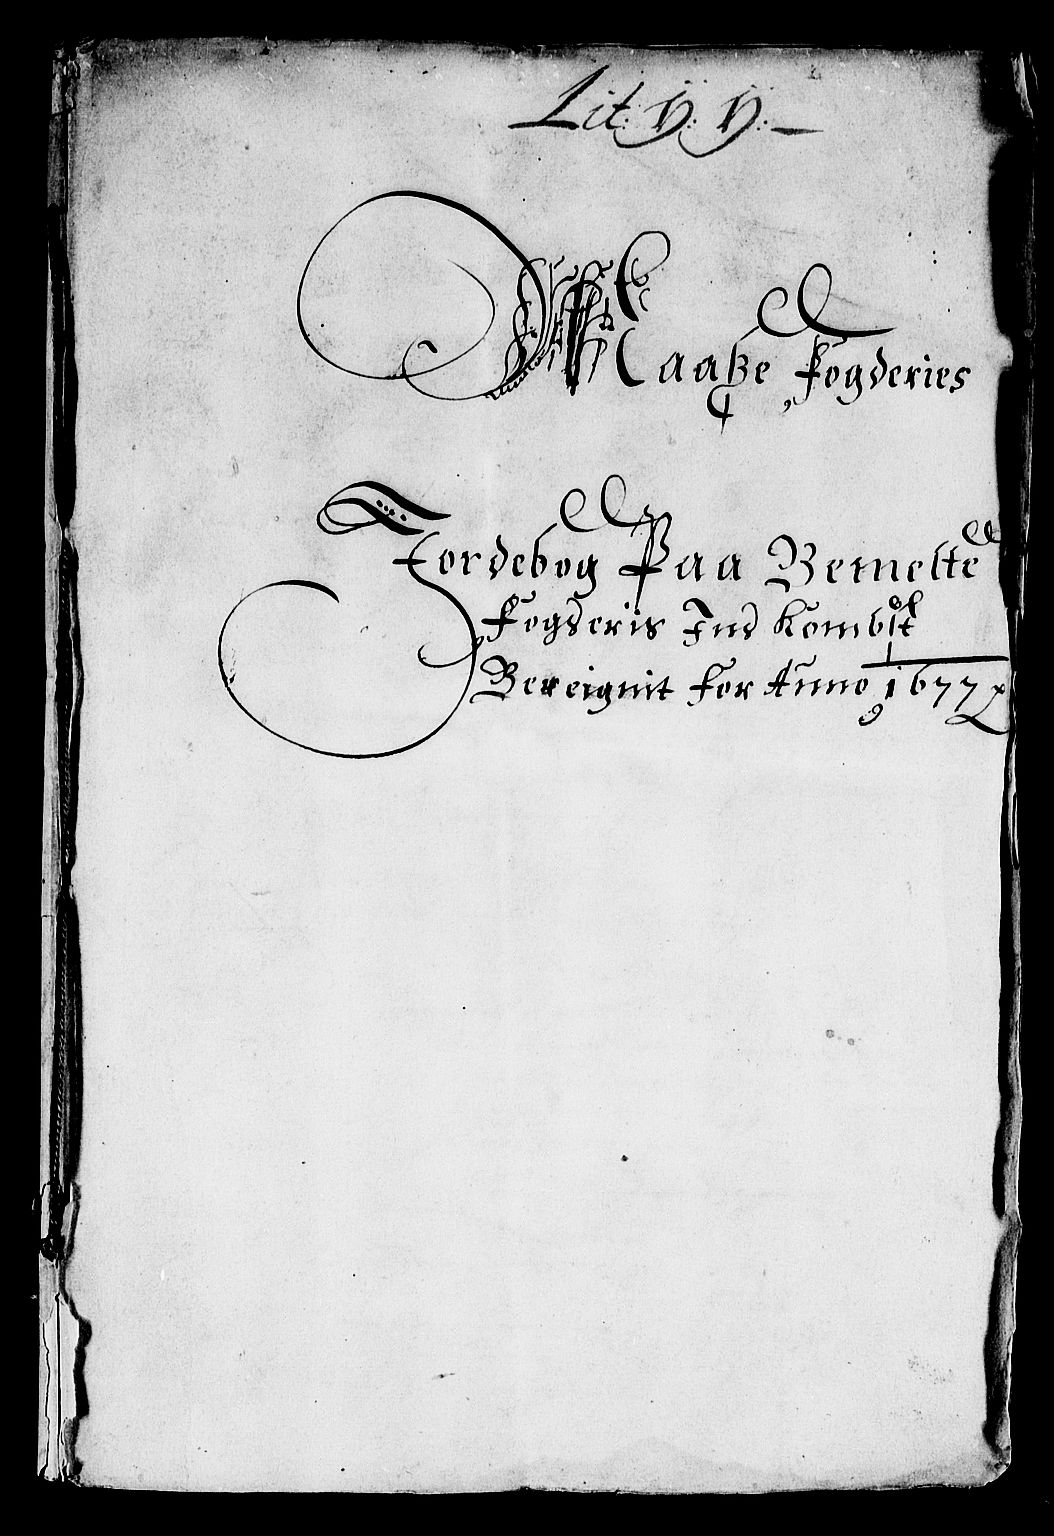 Lit: ÿ: ÿ: —
Raaße Fogderies
Jordebog Paa Bemelte
Fogderis Ind Kombst
Bereignit for Anno 1677